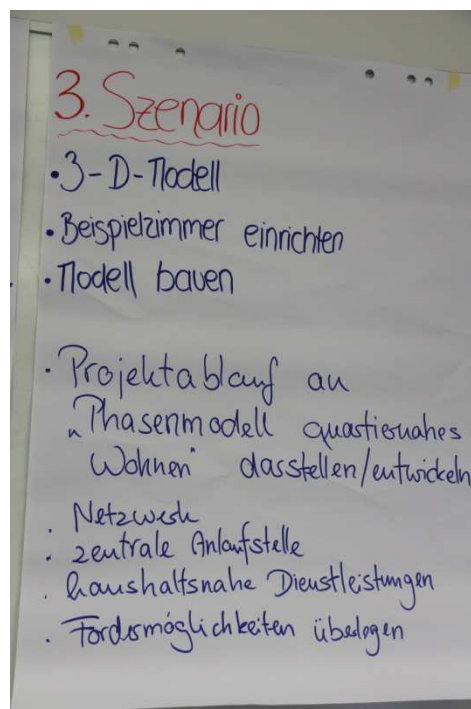 3. Szenario
• 3-D-Modell
• Beispielzimmer einrichten
• Modell bauen
• Projektablauf an
„Phasenmodell quartiernahes
Wohnen" darstellen/entwickeln
• Netzwerk
• zentrale Anlaufstelle
• haushaltsnahe Dienstleistungen
• Fördermöglichkeiten überlegen